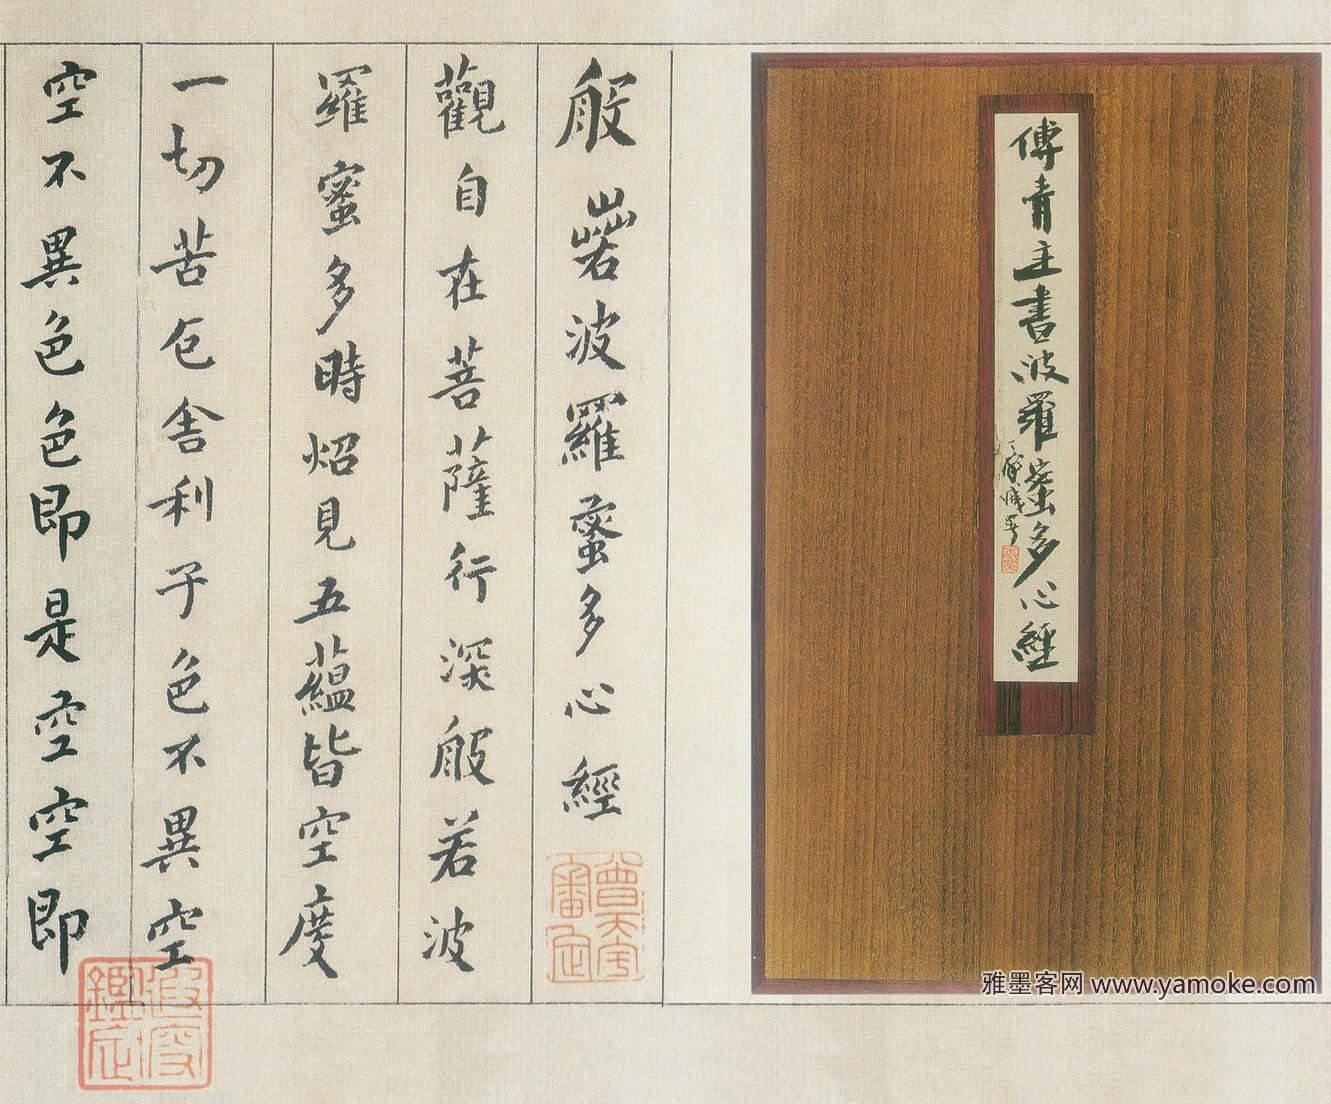 傅青主書波羅蜜多心經
般若波羅蜜多心經
觀自在菩薩行深般若波
羅蜜多時炤見五蘊皆空度
一切苦厄舍利子色不異空
空不異色色即是空空即
雅墨客网 www.yamoke.com